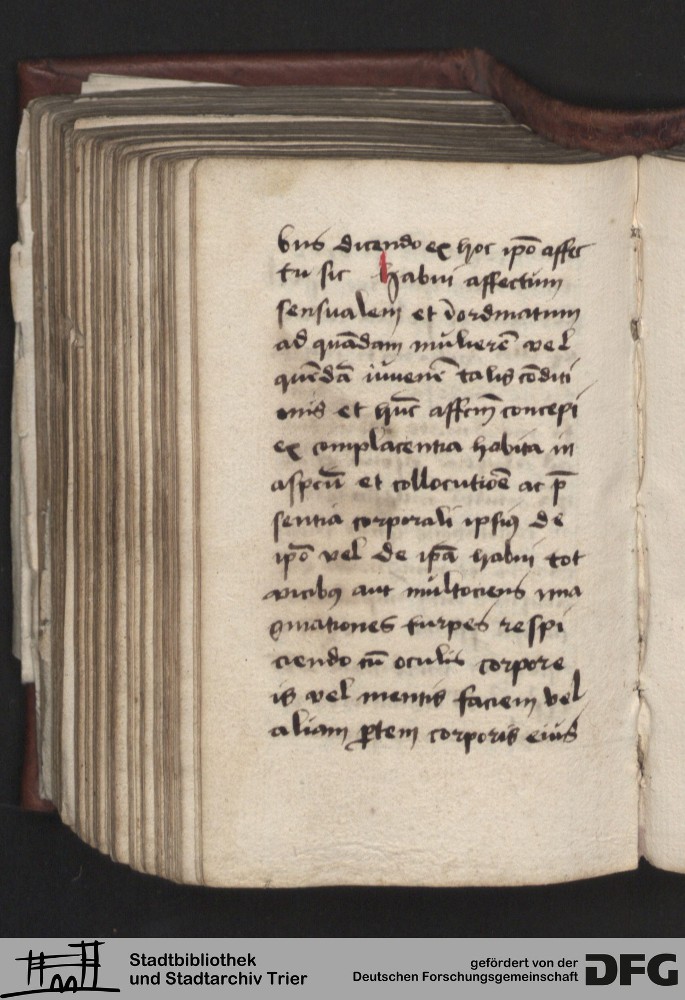 bus dicendo ex hoc ip̄o affec
tu sic habui affectum
sensualem et īordinatum
ad quādam mulierē vel
quēdā iuvenē talis cōditi
onis et hūc affcm̄ concepi
ex complacentia habita in
aspcū et collocutiōe ac p̄
sentia corporali ipsiꝰ de
ip̄o vel de ip̄a habui tot
vicibꝰ aut multociens yma
ginationes turpes respi
ciendo cū oculis corpore
is vel mentis faciem vel
aliam ꝑtem corporis eius
Stadtbibliothek
und Stadtarchiv Trier
gefördert von der
Deutschen Forschungsgemeinschaft
DFG